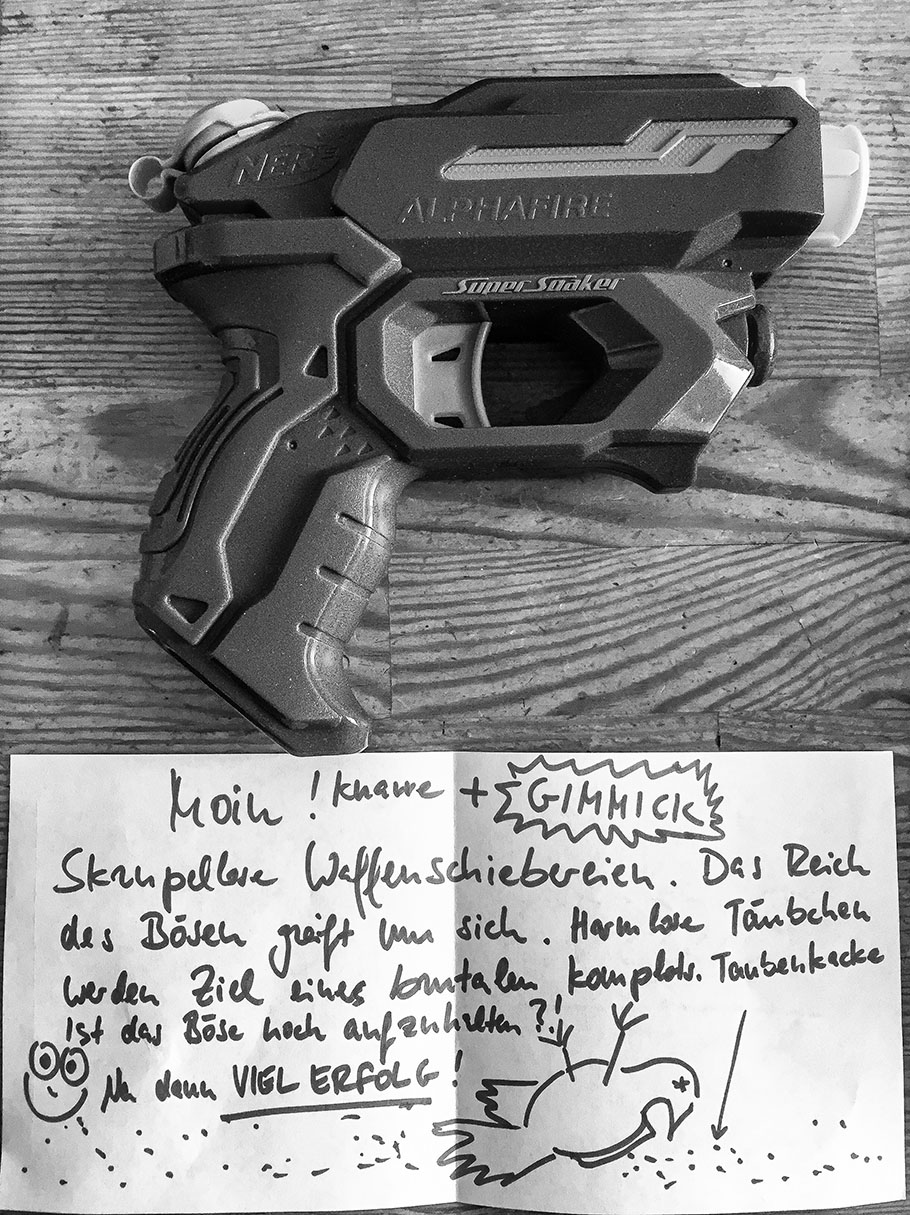 NERF
ALPHAFIRE
Super Soaker
Moin ! Knarre + GIMMICK
Skrupellose Waffenschiebereien. Das Reich
des Bösen greift um sich. Harmlose Täubchen
werden Ziel eines brutalen Komplotts. Taubenkacke
Ist das Böse noch aufzuhalten ?!
Na dann VIEL ERFOLG !